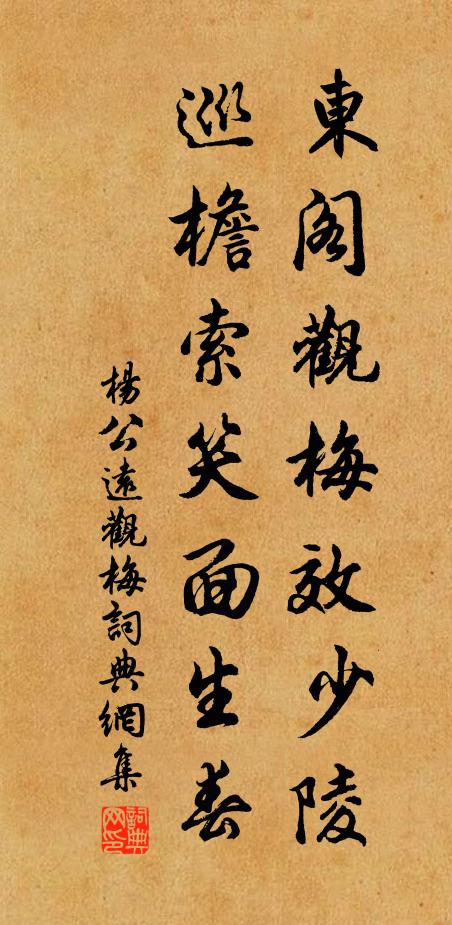 東閣觀梅效少陵
巡檐索笑面生春
楊公遠觀梅詞典網集
詞典網印